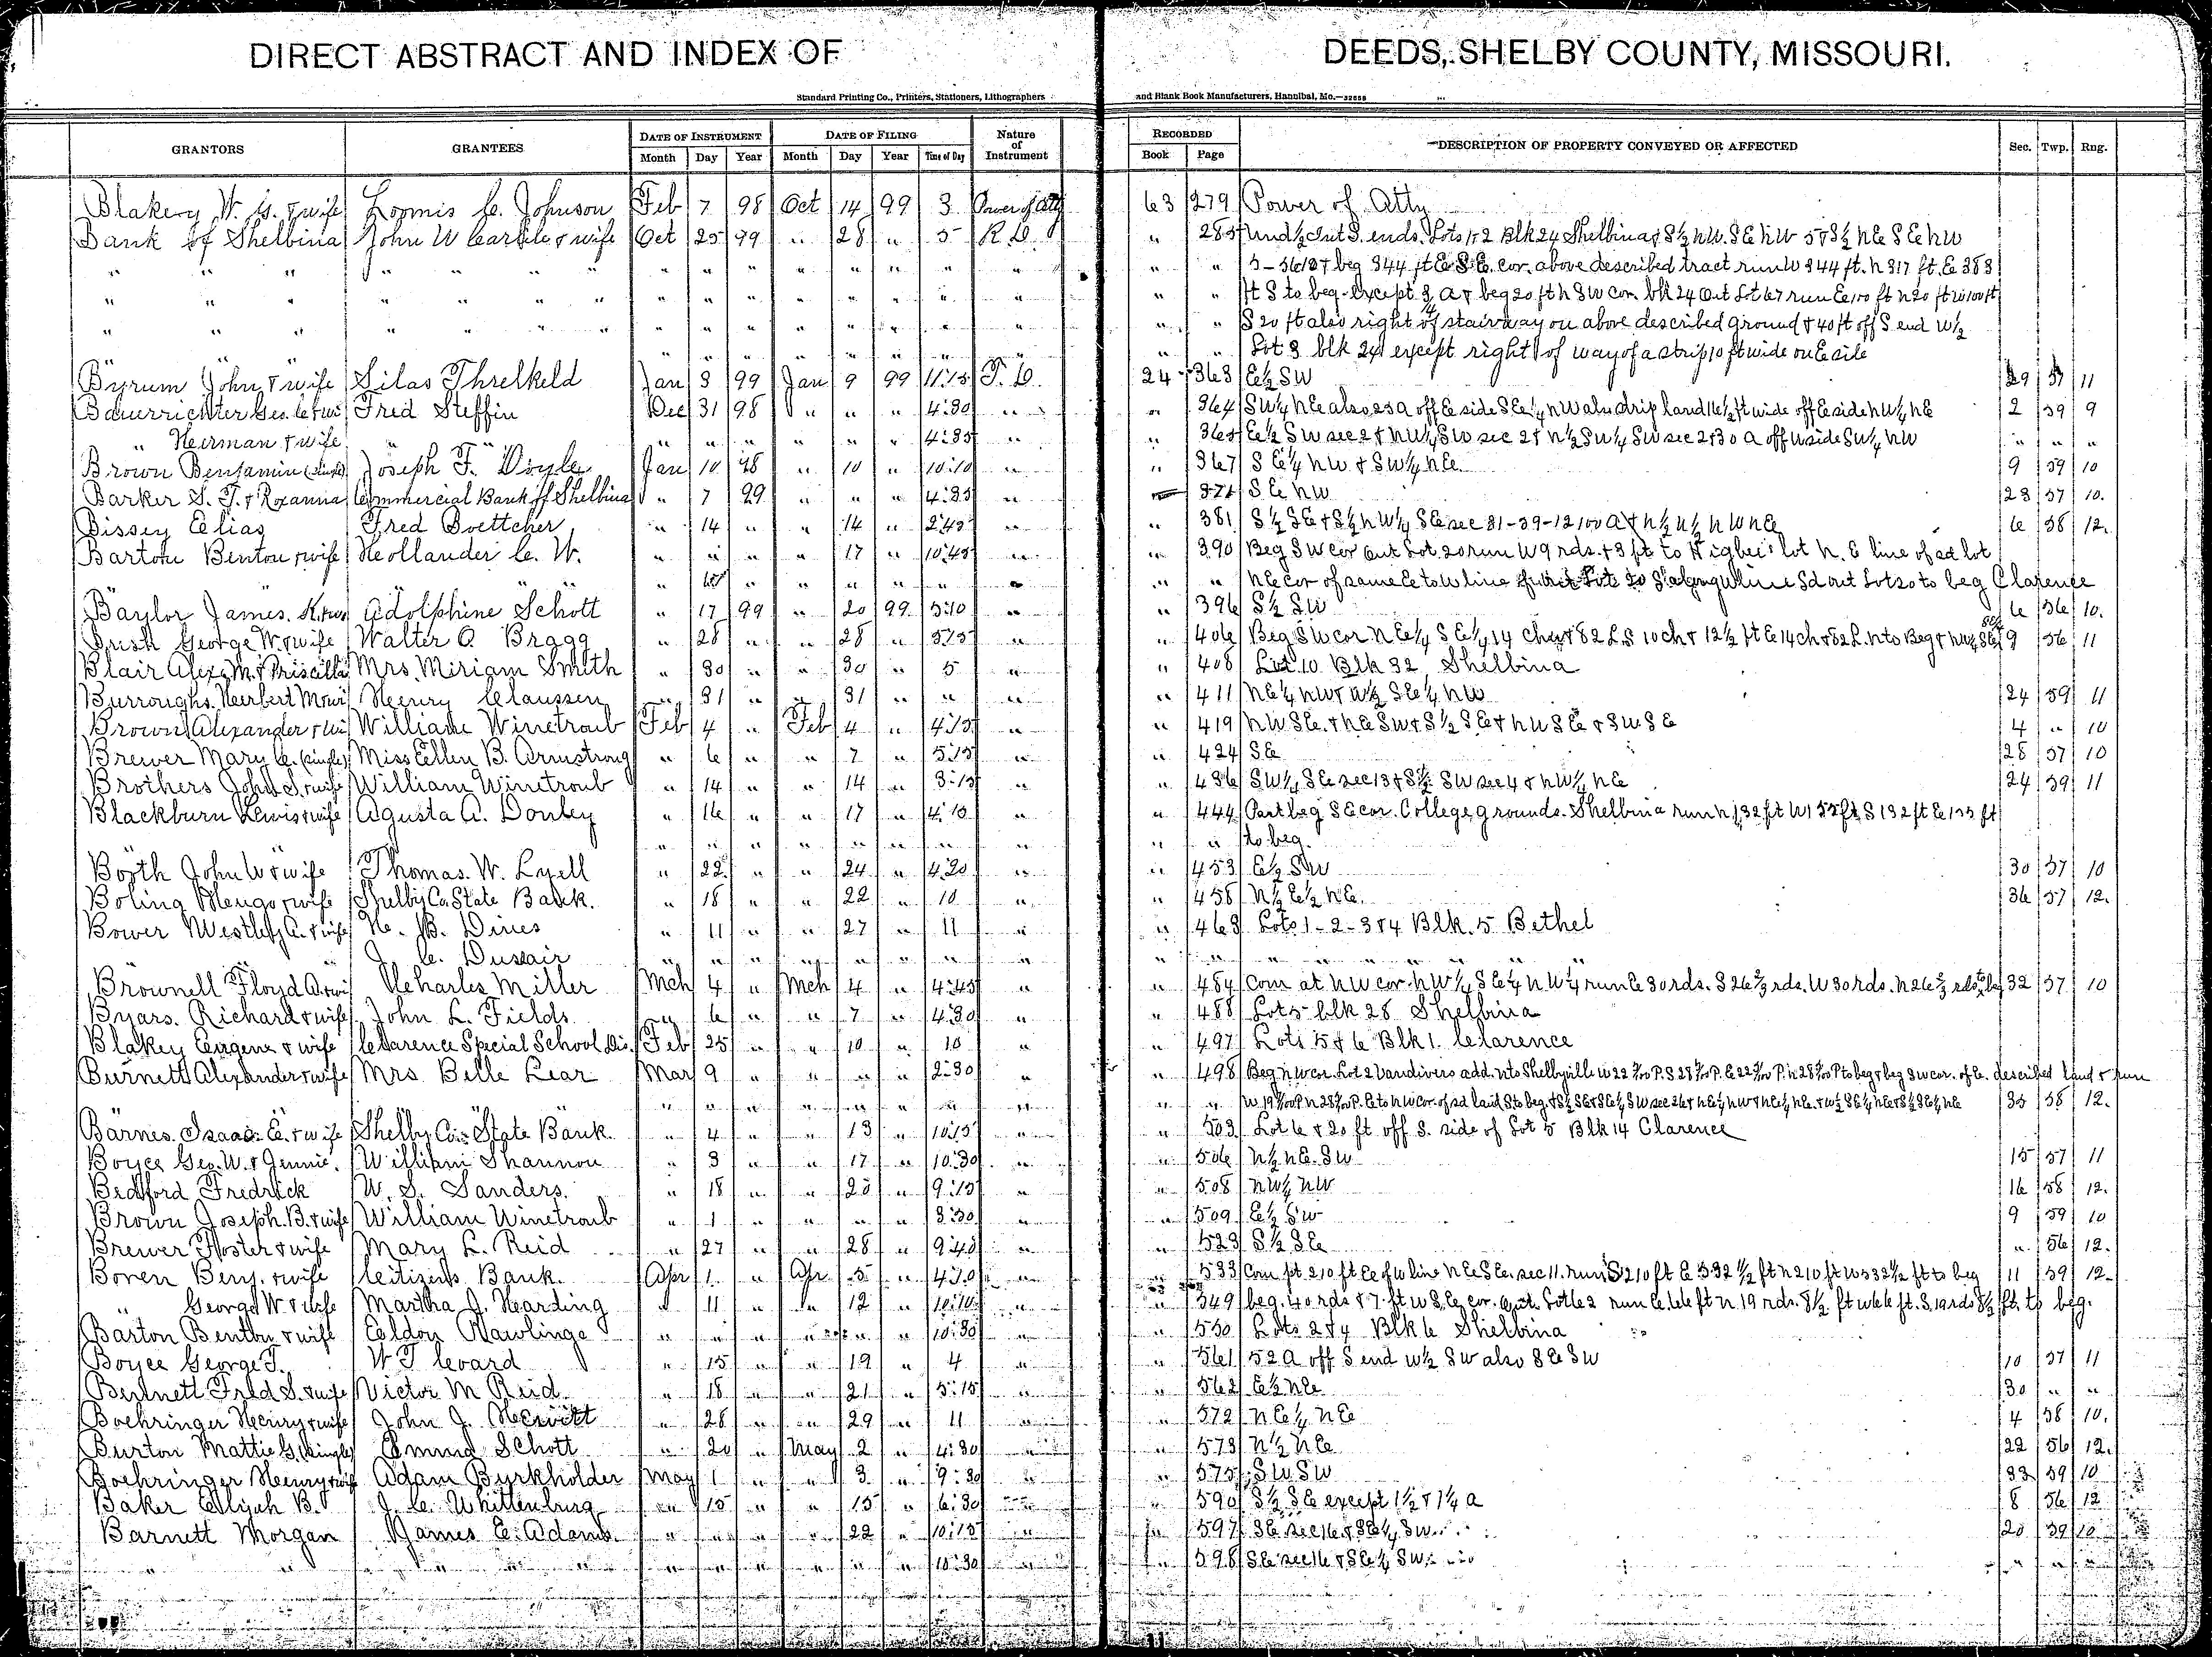 DIRECT ABSTRACT AND INDEX OF DEEDS, SHELBY COUNTY, MISSOURI.
Standard Printing Co., Printers, Stationers, Lithographers and Blank Book Manufacturers, Hannibal, Mo.—32658
GRANTORS GRANTEES DATE OF INSTRUMENT DATE OF FILING Nature of Instrument RECORDED DESCRIPTION OF PROPERTY CONVEYED OR AFFECTED Sec. Twp. Rng.
Month Day Year Month Day Year Time of Day Book Page
Blakery W. G. & wife Loomis C. Johnson Feb 7 98 Oct 14 99 3 Power of Atty 63 279 Power of Atty
Bank of Shelbina John W Carlile & wife Oct 25 99 " 28 " 5 " 285 Und ½ Int S. ends. Lots 1 & 2 Blk 24 Shelbina & S½ NW. SE NW 5 & S½ NE SE NW
" " " " " " " " " " " " " beg 344 ft E SE. cor. above described tract run W 344 ft. N 317 ft. E 383
" " " " " " " " " " " " " ft S to beg. except & beg 20 ft N SW cor. blk 24 Out Lot 67 run E 100 ft N 20 ft W 100 ft
" " " " " " " " " " " " " S 20 ft also right of stairway on above described ground & 40 ft off S end W½
" " " " " " " " " " Lot 3 blk 24 except right of way of a strip 10 ft wide on E side
Byrum John & wife Silas Threlkeld Jan 3 99 Jan 9 99 11:15 24 363 E½ SW 29 57 11
Bauerrichter Geo. C & wi Fred Steffin Dec 31 98 " " " 4:30 " " 364 SW¼ NE also 25 a off E side SE¼ NW also strip land 16½ ft wide off E side NW¼ NE 2 59 9
" Herman & wife " " " " " " " 4:35 " " 365 E½ SW sec 2 & NW¼ SW sec 2 & N½ SW¼ SW sec 2 & 30 a off W side SW¼ NW " " "
Brown Benjamin (single) Joseph F. Doyle Jan 10 98 " 10 " 10:10 " " 367 SE¼ NW & SW¼ NE. 9 59 10
Barker S. T. & Roxanna Commercial Bank of Shelbina " 7 99 " " " 4:35 " 371 SE NW 23 57 10.
Bissey Elias Fred Boettcher " 14 " " 14 " 2:45 " " 381 S½ SE & S½ NW¼ SE sec 31-39-12 100 A & N½ N½ NW NE 6 58 12.
Barton Benton & wife Hollander C. W. " " " " 17 " 10:45 " " 390 Beg SW cor Out Lot 20 run W 9 rds. & 3 ft to Higbee's lot N. E line of sd lot
" " " " " " " " " " NE cor of same E to W line out Lots 20 to beg Clarence
Baylor James. K. & wi Adolphine Schott " 17 99 " 20 99 5:10 " " 396 S½ SW 6 56 10.
Bush George W. & wife Walter O. Bragg " 28 " " 28 " 5:15 " " 406 Beg SW cor NE¼ SE¼ 14 ch & 82 L. S 10 ch & 12½ ft E 14 ch & 82 L. N to Beg & NW¼ SE¼ 9 56 11
Blair Alex M. & Priscilla Mrs. Miriam Smith " 30 " " 30 " 5 " " 408 Lot 10 Blk 32 Shelbina
Burroughs Herbert M & wi Henry Claussen " 31 " " 31 " " " " 411 NE¼ NW & W½ SE¼ NW 24 59 11
Brown Alexander & wi William Winetroub Feb 4 " Feb 4 " 4:15 " " 419 NW SE. & NE SW & S½ SE & NW SE & SW SE 4 " 10
Brewer Mary C. (single) Miss Ellen B. Armstrong " 6 " " 7 " 5:15 " " 424 SE 28 57 10
Brothers John S. & wife William Winetroub " 14 " " 14 " 3:15 " " 436 SW¼ SE sec 13 & S½ SW sec 4 & NW¼ NE 24 59 11
Blackburn Lewis & wife Agusta A. Donley " 16 " " 17 " 4:10 " " 444 Part beg SE cor. College grounds. Shelbina run N 132 ft W 155 ft S 132 ft E 155 ft
" " " " " " " " " to beg.
Booth John W & wife Thomas. W. Lyell " 22 " " 24 " 4:20 " " 453 E½ SW 30 57 10
Boling Mengo & wife Shelby Co. State Bank. " 18 " " 22 " 10 " " 458 N½ E½ NE. 36 57 12.
Bower Westley C. & wife H. B. Dines " 11 " " 27 " 11 " " 463 Lots 1-2-3 & 4 Blk. 5 Bethel
" " J. C. Dussair " " " " " " " " " " " " " "
Brownell Floyd A. & wi Charles Miller Mch 4 " Mch 4 " 4:45 " " 484 Com at NW cor. NW¼ SE¼ NW¼ run E 30 rds. S 26⅔ rds. W 30 rds. N 26⅔ rds to beg 32 57 10
Byars. Richard & wife John L. Fields " 6 " " 7 " 4:30 " " 488 Lot 5 blk 28 Shelbina
Blakey Eugene & wife Clarence Special School Dis. Feb 25 " " 10 " 10 " " 497 Lots 5 & 6 Blk 1. Clarence
Burnett Alexander & wife Mrs Belle Lear Mar 9 " " " " 2:30 " " 498 Beg NW cor. Lot 2 Vandivers add. into Shelbyville to beg & beg SW cor. of described land & run
" " " " " " " " " 35 58 12.
Barnes. Isaac. E. & wife Shelby Co. State Bank. " 4 " " 13 " 10:15 " " 503 Lot 6 & 20 ft off S. side of Lot 5 Blk 14 Clarence
Boyce Geo. W. & Jennie. William Shannon " 3 " " 17 " 10:30 " " 506 N½ NE. SW 15 57 11
Bedford Fredrick W. S. Sanders. " 18 " " 25 " 9:15 " " 508 NW¼ NW 16 58 12.
Brown Joseph. B. & wife William Winetroub " 1 " " " " 8:30 " " 509 E½ SW 9 59 10
Brewer Foster & wife Mary L. Reid " 27 " " 28 " 9:45 " " 523 S½ SE " 56 12.
Boren Benj. & wife Citizens Bank. Apr 1 " Apr 5 " 4:30 " " 533 Com pt. 210 ft E of W line NE SE. sec 11. run S 210 ft E 532½ ft N 210 ft W 532½ ft to beg 11 59 12.
" George W & wife Martha J. Harding " 11 " " 12 " 10:10 " " 549 beg. 40 rds & 7 ft W SE cor. Out Lot 62 run E 66 ft N 19 rds. 8½ ft W 66 ft. S. 19 rds 8½ ft. to beg.
Barton Benton & wife Eldon Rawlings " " " " " " 10:30 " " 550 Lots 2 & 4 Blk 6 Shelbina
Boyce George T. W T Evard " 15 " " 19 " 4 " " 561 52 A off S end W½ SW also SE SW 10 57 11
Burnett Fred S. & wife Victor M Reid " 18 " " 21 " 5:15 " " 562 E½ NE 30 " "
Boehringer Henry & wife John J. Hewitt " 28 " " 29 " 11 " " 572 NE¼ NE 4 58 10.
Burton Mattie G. (single) Emma Schott " 20 " May 2 " 4:30 " " 573 N½ NE 22 56 12.
Boehringer Henry & wife Adam Burkholder May 1 " " 3 " 9:30 " " 575 SW SW 33 59 10
Baker Elijah B. J. C. Whittenburg " 15 " " 15 " 6:30 " " 590 S½ SE except 1½ & 1¼ a 8 56 12
Barnett Morgan James E. Adams. " " " " 22 " 10:15 " " 597 SE sec 16 & SE¼ SW 20 59 10
" " " " " " " " 10:30 " " 598 SE sec 16 & SE¼ SW " " "